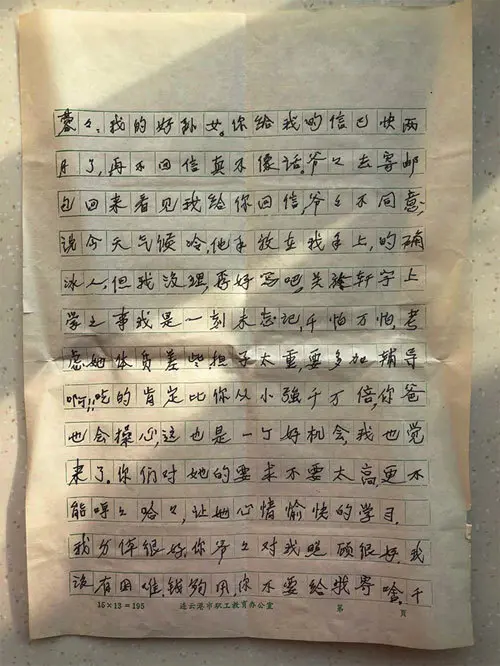 蓉々、我的好孙女。你给我的信已快两
月了，再不回信真不像话。爷々去寄邮
包回来看见我给你回信，爷々不同意，
说今天气候冷，他手放在我手上，的确
冰人，但我没理，要好写吧，关於轩宇上
学之事我是一刻未忘记，千怕万怕，考
虑她体质差些担子太重，要多加辅导
啊！吃的肯定比你从小强千万倍，你爸
也会操心，这也是一个好机会，我也觉
来了。你们对她的要求不要太高更不
能哼々哈々，让她心情愉快的学习。
我身体很好，你爷々对我照顾很好，我
没有困难，钱够用，你不要给我寄啥，千
15×13=195 连云港市职工教育办公室 第 页